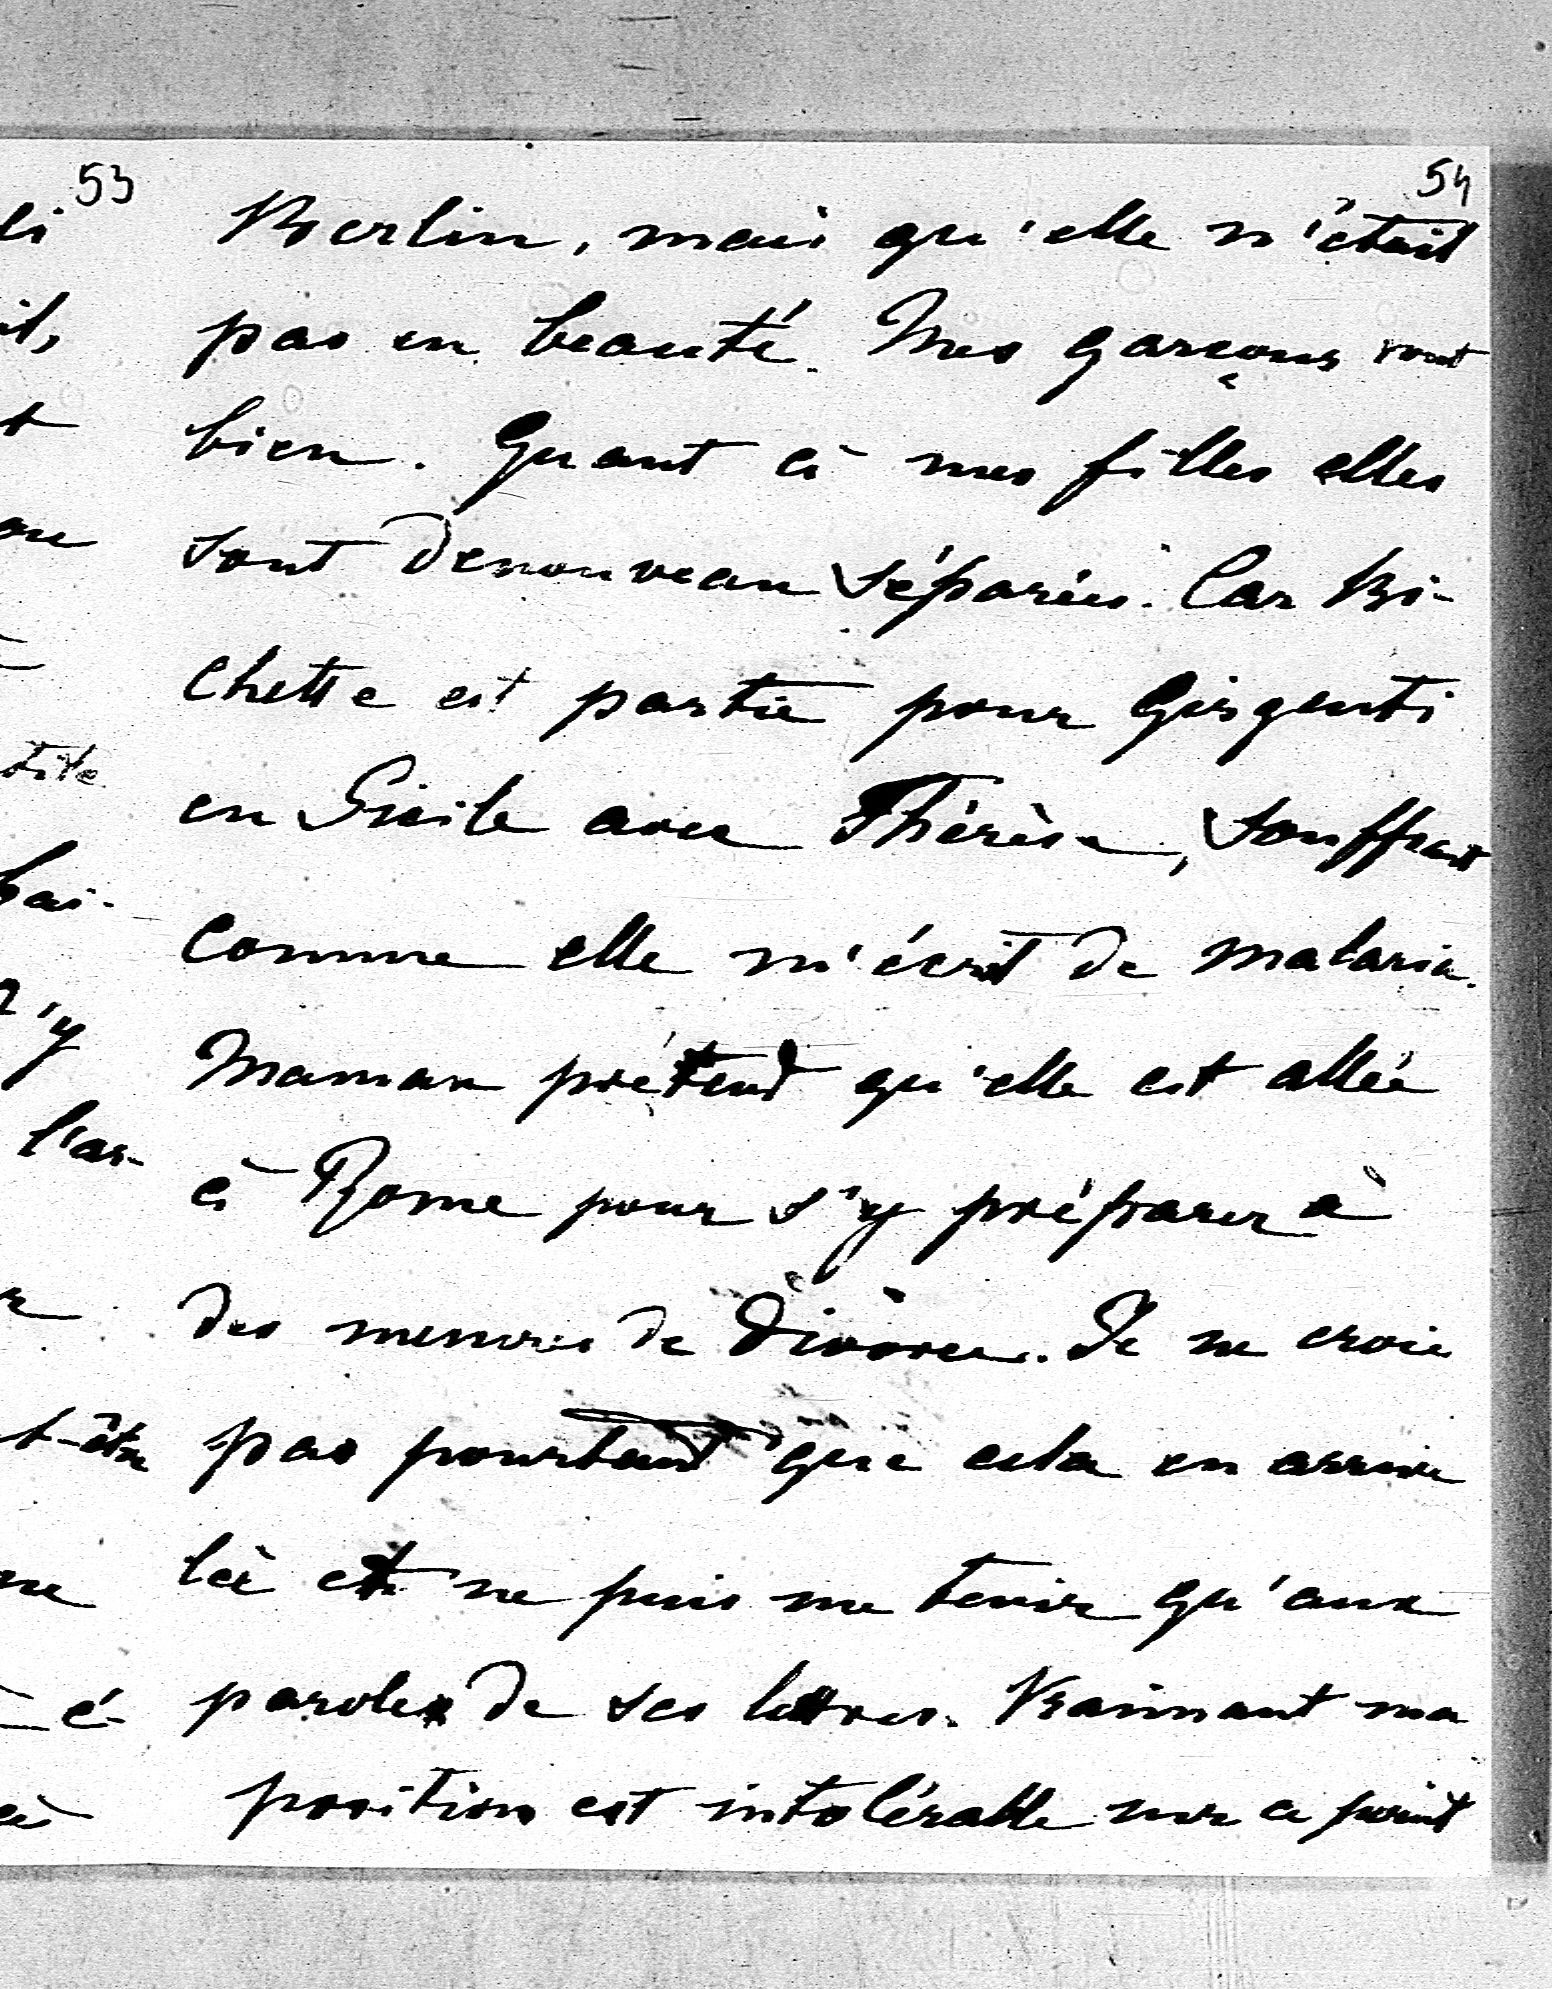 53
54
Berlin, mais qu'elle n'était
pas en beauté. Mes garçons vont
bien. Quant à mes filles elles
sont denouveau séparées. Car Bi-
chette est partie pour Girgenti
en Sicile avec Thérèse, souffrant
comme elle m'écrit de malaria.
Maman prétend qu'elle est allée
à Rome pour s'y préparer à
des mesures de divorce. Je ne crois
pas pourtant que cela en arrive
là et ne puis me tenir qu'aux
paroles de ses lettres. Vraiment ma
position est intolérable sur ce point